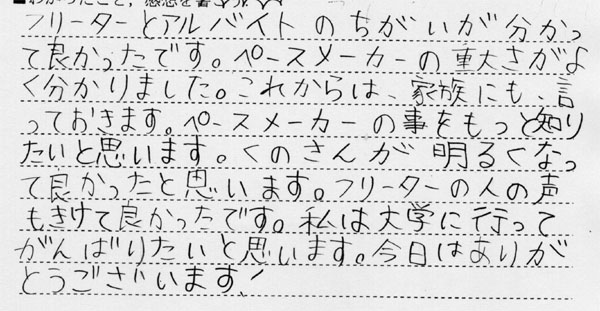 フリーターとアルバイトのちがいが分かっ
て良かったです。ペースメーカーの重大さがよ
く分かりました。これからは、家族にも、言
っておきます。ペースメーカーの事をもっと知り
たいと思います。くのさんが明るくなっ
て良かったと思います。フリーターの人の声
もきけて良かったです。私は大学に行って
がんばりたいと思います。今日はありが
とうございます!